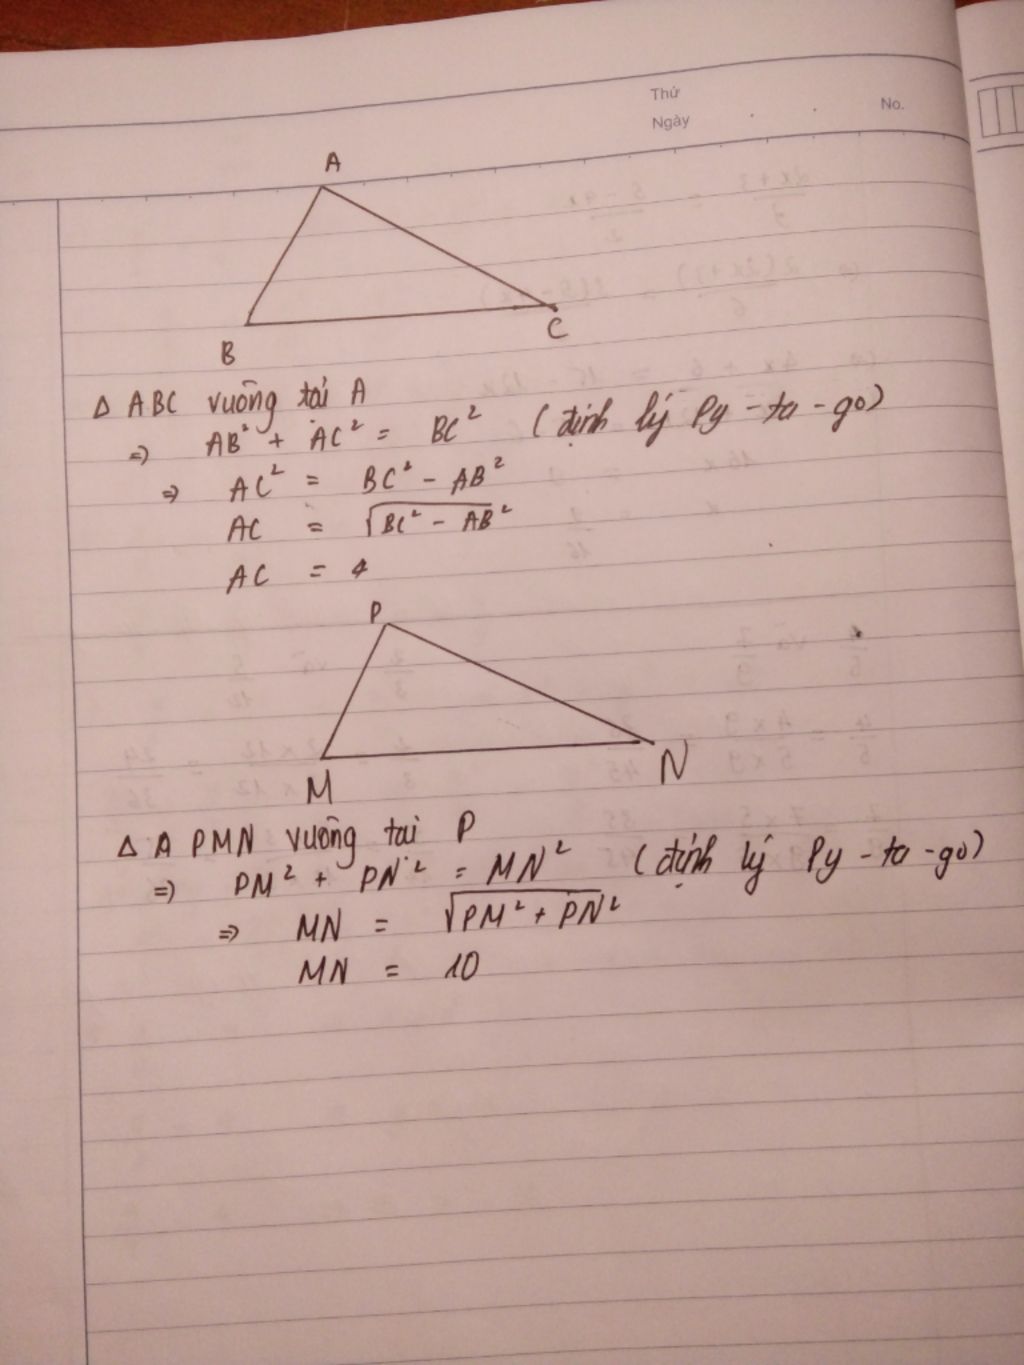 Thứ
Ngày
No.
A
B
C
Δ ABC vuông tại A
=> AB² + AC² = BC² (định lý Py - ta - go)
=> AC² = BC² - AB²
AC = √BC² - AB²
AC = 4
P
M
N
Δ A PMN vuông tai P
=> PM² + PN² = MN² (định lý Py - ta - go)
=> MN = √PM² + PN²
MN = 10